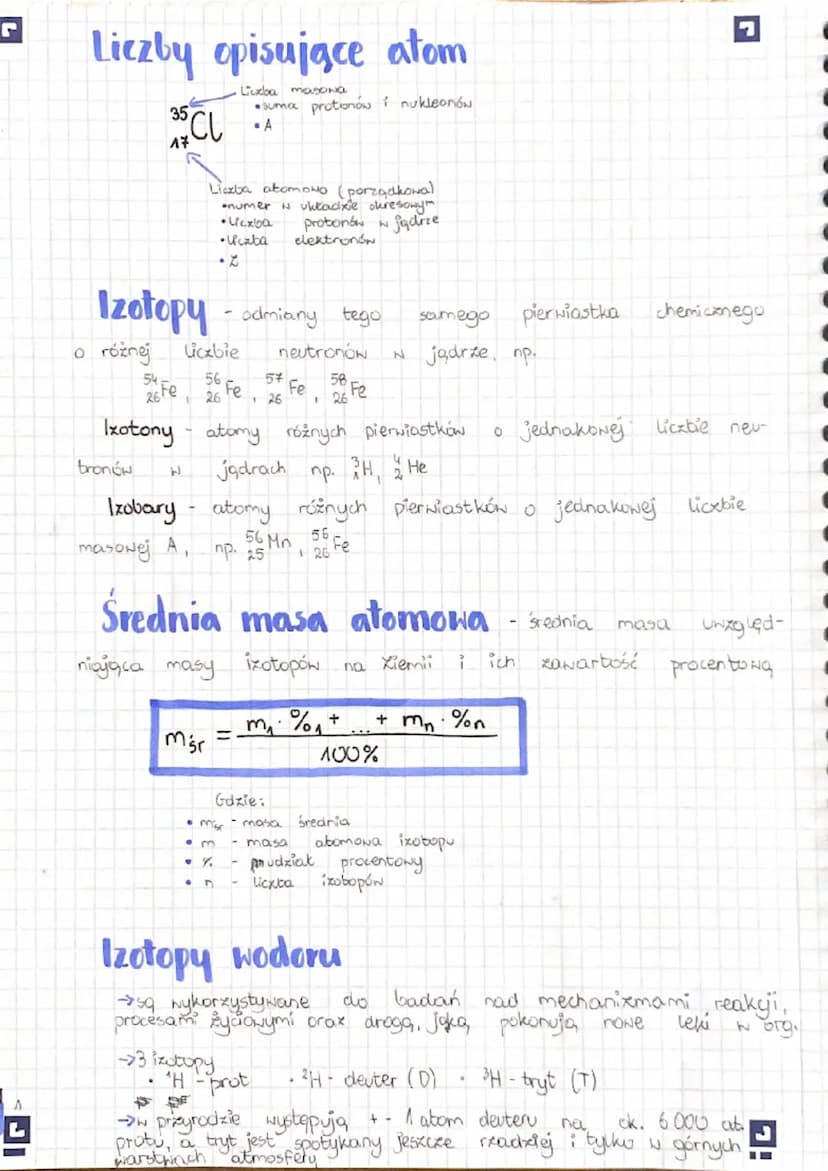 Liczby opisujące atom
Liczba masowa
• suma protonów i nukleonów
• A
³⁵₁₇Cl
Liczba atomowa (porządkowa)
• numer w układzie okresowym
• liczba protonów w jądrze
• liczba elektronów
• Z
Izotopy - odmiany tego samego pierwiastka chemicznego
o różnej liczbie neutronów w jądrze, np.
⁵⁴₂₆Fe, ⁵⁶₂₆Fe, ⁵⁷₂₆Fe, ⁵⁸₂₆Fe
Izotony - atomy różnych pierwiastków o jednakowej liczbie neu-
tronów w jądrach np. ³₁H, ⁴₂He
Izobary - atomy różnych pierwiastków o jednakowej liczbie
masowej A, np. ⁵⁶₂₅Mn, ⁵⁶₂₆Fe
Średnia masa atomowa - średnia masa uwzględ-
niająca masy izotopów na Ziemii i ich zawartość procentową
mśr = (m₁ · %₁ + ... + mₙ · %n) / 100%
Gdzie:
• mśr - masa średnia
• m - masa atomowa izotopu
• % - udział procentowy
• n - liczba izotopów
Izotopy wodoru
→ są wykorzystywane do badań nad mechanizmami reakcji,
procesami życiowymi oraz drogą, jaką pokonują nowe leki w org.
→ 3 izotopy
• ¹H - prot • ²H - deuter (D) • ³H - tryt (T)
→ w przyrodzie występują + - 1 atom deuteru na ok. 6000 at.
protu, a tryt jest spotykany jeszcze rzadziej i tylko w górnych
warstwach atmosfery